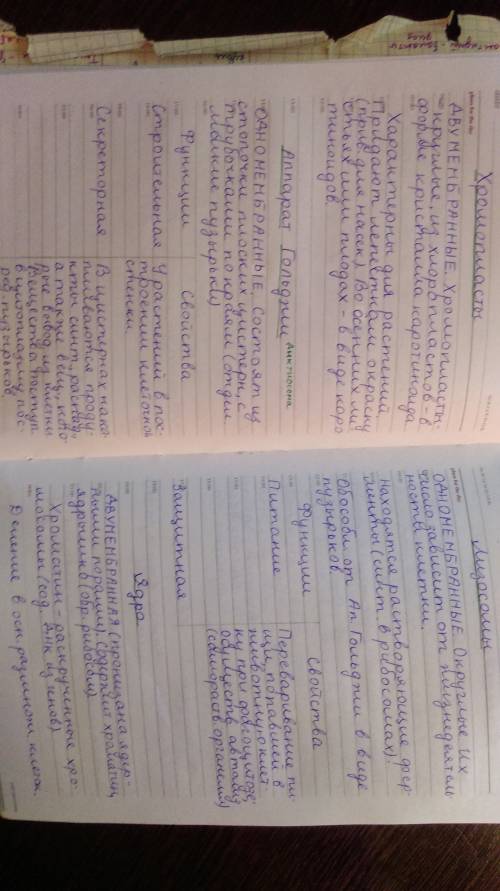 Хромопласты
ДВУМЕМБРАННЫЕ. Хромопласты-
круглые, из хлорпластов - в
форме кристалла каротиноида
Характерны для растений
Придают лепесткам окраску
(прив. для насек). Во осенних ли
стьях или плодах - в виде каро
тиноидов.
Аппарат Гольджи диктиосома
ОДНОМЕМБРАННЫЕ. Состоят из
стопочки плоских цистерн, с
трубочками по краям (отдел
мелкие пузырьки)
Функции Свойства
Строительная У растений в пос-
троении клеточной
стенки
Секреторная В цистернах нака-
пливаются проду-
кты синт., распада,
а также вещ., кото-
рые вывод. из клетки
Вещества поступ.
в цитоплазму пос-
ред. пузырьков
Лизосомы
ОДНОМЕМБРАННЫЕ. Округлые. Их
число зависит от жизнедеятель
ности клетки.
Находятся растворяющие фер-
менты (синт. в рибосомах).
Обособл. от Ап. Гольджи в виде
пузырьков.
Функции Свойства
Питание Переваривание пи-
щи, попавшей в
животную клет-
ку при фагоцитозе;
Защитная
Ядро
ДВУМЕМБРАННАЯ (пронизана ядер-
ными порами). Содержит хроматин,
ядрышко (обр. рибосом)
Хроматин - раскрученные хро-
мосомы (сод. ДНК из генов)
Деление в осн размнож клеток.